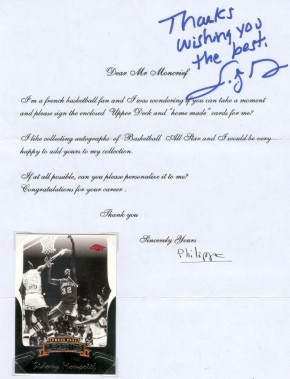 Thanks
wishing you
the best.
Dear Mr Moncrief
I'm a french basketball fan and I was wondering if you can take a moment
and please sign the enclosed "Upper Deck and "home made" cards for me?
I like collecting autographs of Basketball All Star and I would be very
happy to add yours to my collection.
If at all possible, can you please personalize it to me?
Congratulations for your career .
Thank you
Sincerely Yours
Philippe
32
Sidney Moncrief